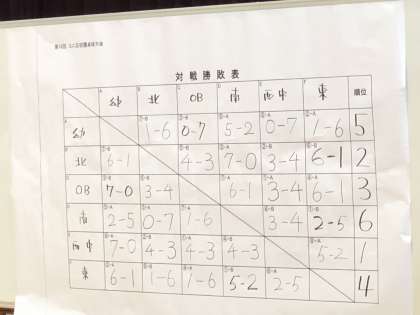 対戦勝敗表
A B C D E F
幼 北 OB 南 西中 東 順位
A 幼 1-6 0-7 5-2 0-7 1-6 5
B 北 6-1 4-3 7-0 3-4 6-1 2
C OB 7-0 3-4 6-1 3-4 6-1 3
南 2-5 0-7 1-6 3-4 2-5 6
西中 7-0 4-3 4-3 4-3 5-2 1
東 6-1 1-6 1-6 5-2 2-5 4